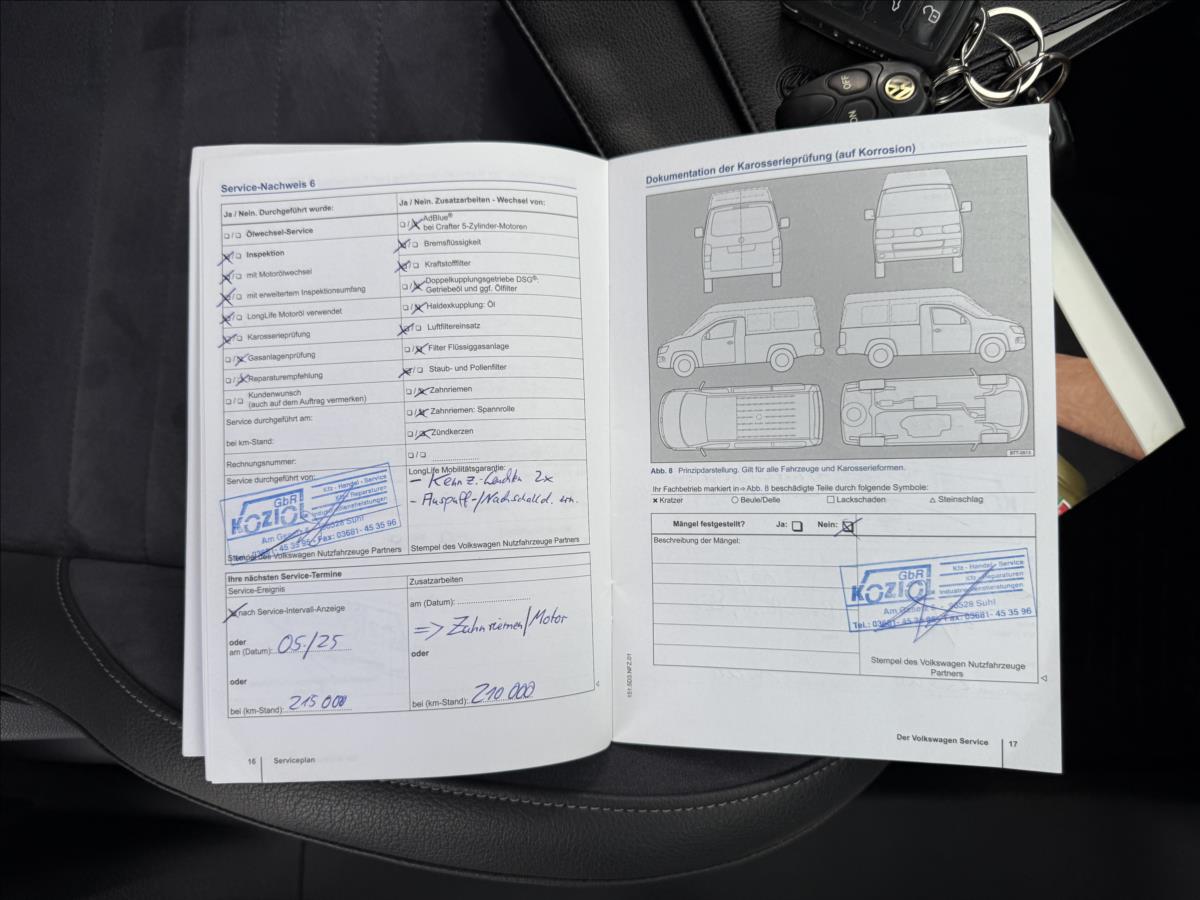 OFF
ON
Service-Nachweis 6
Ja / Nein. Durchgeführt wurde:
Ölwechsel-Service
Inspektion
mit Motorölwechsel
mit erweitertem Inspektionsumfang
LongLife Motoröl verwendet
Karosserieprüfung
Gasanlagenprüfung
Reparaturempfehlung
Kundenwunsch
(auch auf dem Auftrag vermerken)
Service durchgeführt am:
bei km-Stand:
Rechnungsnummer:
Service durchgeführt von:
GbR
KOZIOL
Kfz - Handel - Service
Kfz - Reparaturen
Industriedienstleistungen
98528 Suhl
Fax: 03681- 45 35 96
Stempel des Volkswagen Nutzfahrzeuge Partners
Ja / Nein. Zusatzarbeiten - Wechsel von:
AdBlue®
bei Crafter 5-Zylinder-Motoren
Bremsflüssigkeit
Kraftstofffilter
Doppelkupplungsgetriebe DSG®:
Getriebeöl und ggf. Ölfilter
Haldexkupplung: Öl
Luftfiltereinsatz
Filter Flüssiggasanlage
Staub- und Pollenfilter
Zahnriemen
Zahnriemen: Spannrolle
Zündkerzen
LongLife Mobilitätsgarantie:
- Kennz.-Leuchten 2x
- Auspuff-/Nachschalld. ern.
Stempel des Volkswagen Nutzfahrzeuge Partners
Ihre nächsten Service-Termine
Service-Ereignis
nach Service-Intervall-Anzeige
oder
am (Datum): 05./25
oder
bei (km-Stand): 215 000
Zusatzarbeiten
am (Datum):
=> Zahnriemen/Motor
oder
bei (km-Stand): 210 000
16 Serviceplan
Dokumentation der Karosserieprüfung (auf Korrosion)
B7T-0613
Abb. 8 Prinzipdarstellung. Gilt für alle Fahrzeuge und Karosserieformen.
Ihr Fachbetrieb markiert in ⇒ Abb. 8 beschädigte Teile durch folgende Symbole:
× Kratzer ○ Beule/Delle □ Lackschaden △ Steinschlag
Mängel festgestellt? Ja: Nein:
Beschreibung der Mängel:
GbR
KOZIOL
Kfz - Handel - Service
Kfz - Reparaturen
Industriedienstleistungen
98528 Suhl
Tel.: 03681- 45 35 95 Fax: 03681- 45 35 96
Stempel des Volkswagen Nutzfahrzeuge
Partners
151.5D3.NFZ.01
Der Volkswagen Service 17